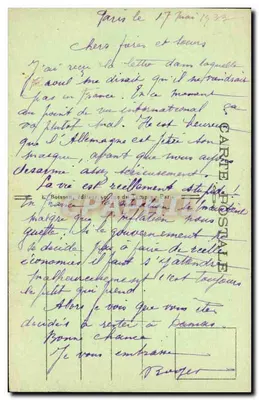 Paris le 17 mai 1933
Chers frères et sœurs
J'ai reçu la lettre dans laquelle
Raoul me disait qu'il
pas en France. En ce moment
au point de vue international ça
va plutôt mal. Il est heureux
que l'Allemagne ait jeté son
masque, avant que nous
désarmé assez sérieusement.
La vie est réellement
en France
malgré que l'inflation nous
guette. Si le gouvernement
se décide pas à faire de réelles
économies il faut s'attendre
malheureusement c'est toujours
le petit qui prend
Alors je vois que vous êtes
décidés à rester à Damas
Bonne chance
Je vous embrasse
Roger
CARTE POSTALE